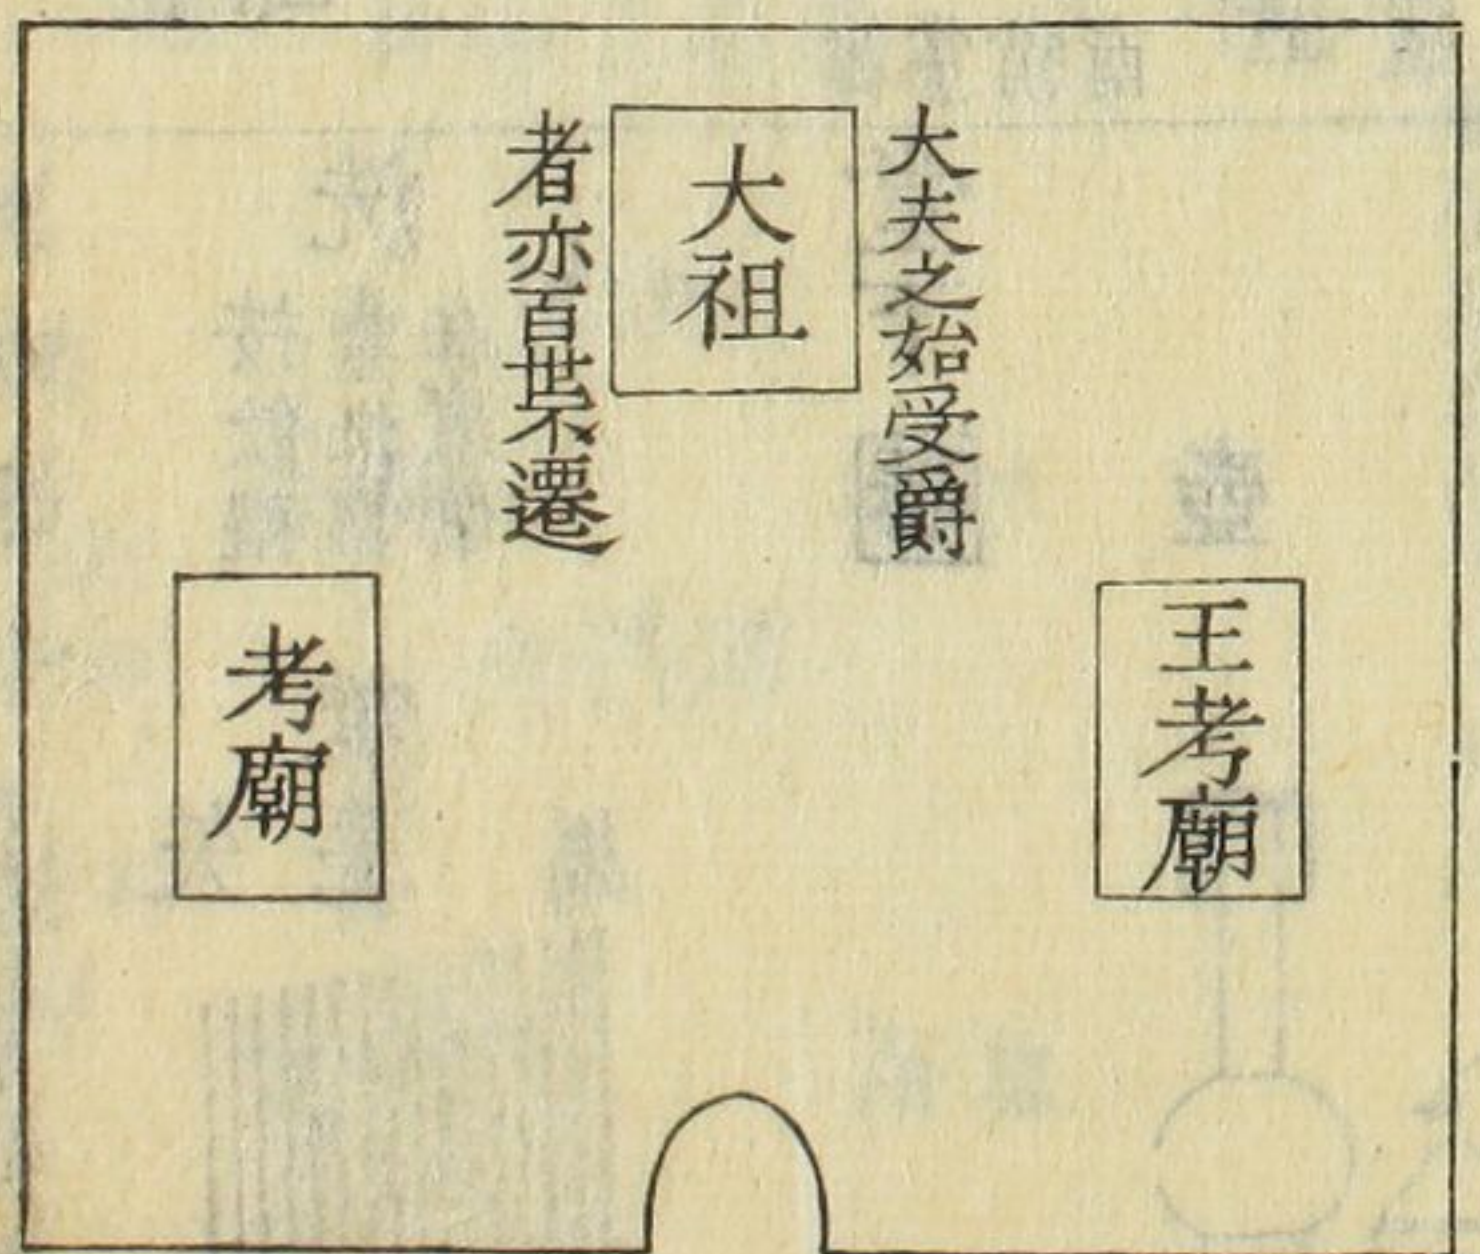 大夫之始受爵
大祖
者亦百世不遷
王考廟
考廟